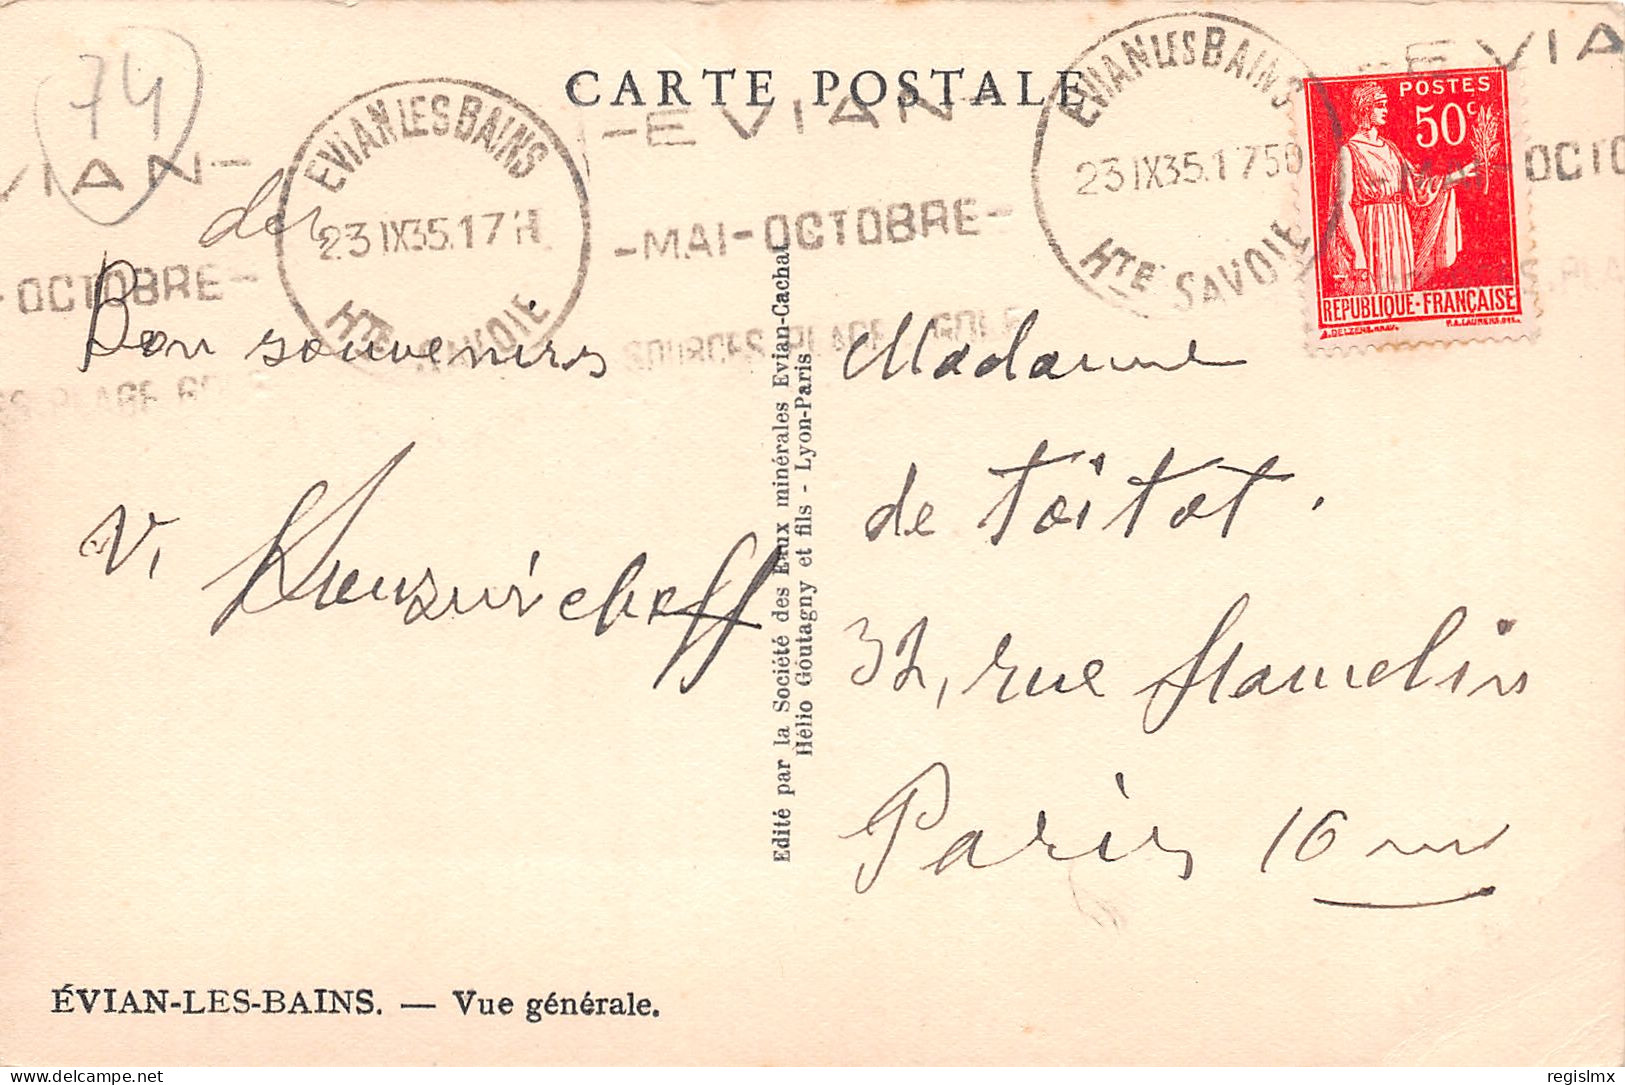 74
CARTE POSTALE
EVIAN LES BAINS
23 IX 35.17 H
HTE SAVOIE
-EVIAN-
-MAI-OCTOBRE-
SOURCES PLAGE GOLF
EVIAN LES BAINS
23 IX 35.1750
HTE SAVOIE
-EVIA
MAI-OCTO
PLA
VIAN-
-OCTOBRE-
ES PLAGE GO
POSTES
50c
REPUBLIQUE-FRANÇAISE
Bon souvenirs
V.
Madame
de Toitot.
32, rue Hamelin
Paris 16 me
Edité par la Société des Eaux minérales Evian-Cachat
Hélio Goutagny et fils - Lyon-Paris
ÉVIAN-LES-BAINS. — Vue générale.
delcampe.net
regislmx